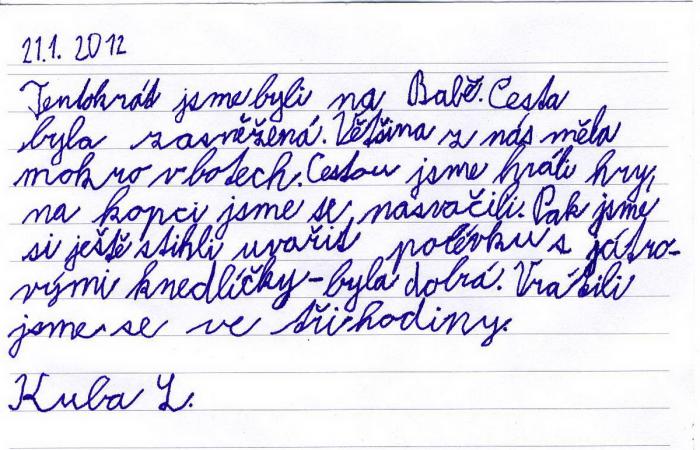 21.1. 2012
Tentokrát jsme byli na Babě. Cesta
byla zasněžená. Většina z nás měla
mokro v botech. Cestou jsme hráli hry,
na kopci jsme se nasvačili. Pak jsme
si ještě stihli uvařit polévku s játro-
vými knedlíčky-byla dobrá. Vrátili
jsme se ve tři hodiny.
Kuba L.